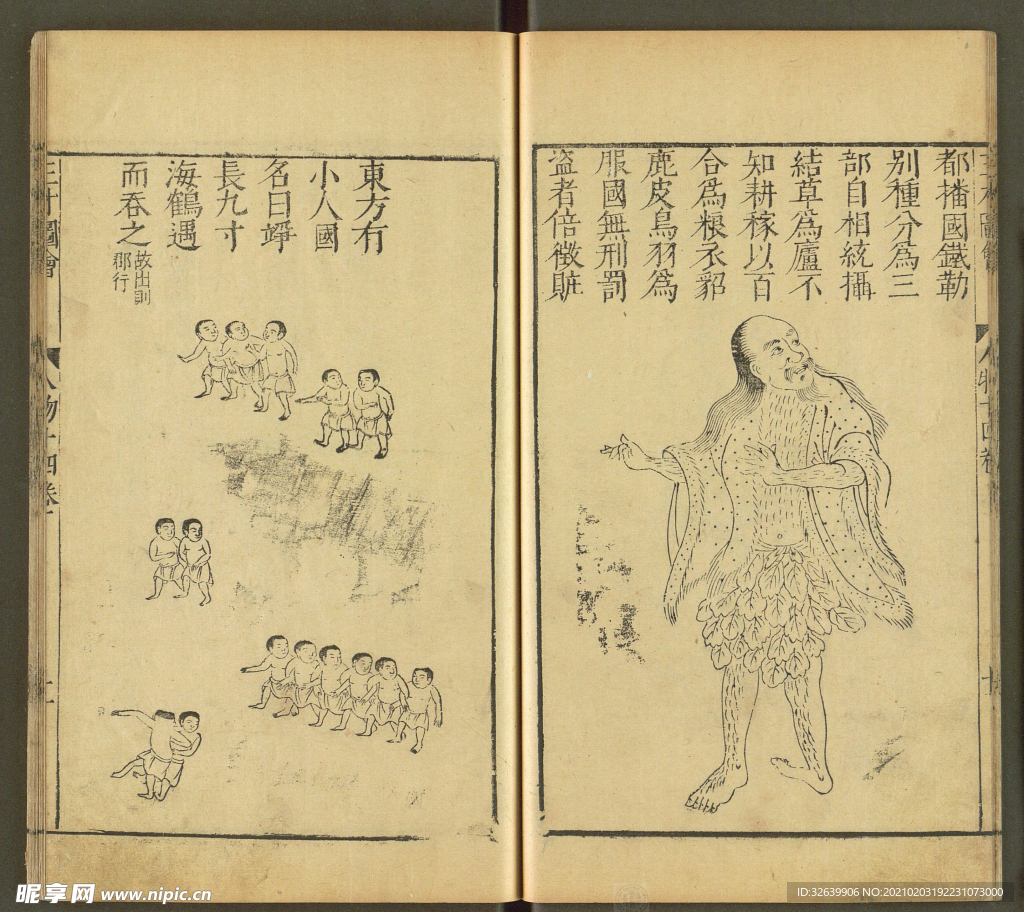 都播國鐵勒
別種分為三
部自相統攝
結草為廬不
知耕稼以百
合為粮衣貂
鹿皮鳥羽為
服國無刑罰
盜者倍徵賍
東方有
小人國
名曰竫
長九寸
海鶴遇
而吞之
故出則
羣行
三才圖會
人物十四卷
十
三才圖會
人物十四卷
十一
昵享网 www.nipic.cn
ID:32639906 NO:20210203192231073000